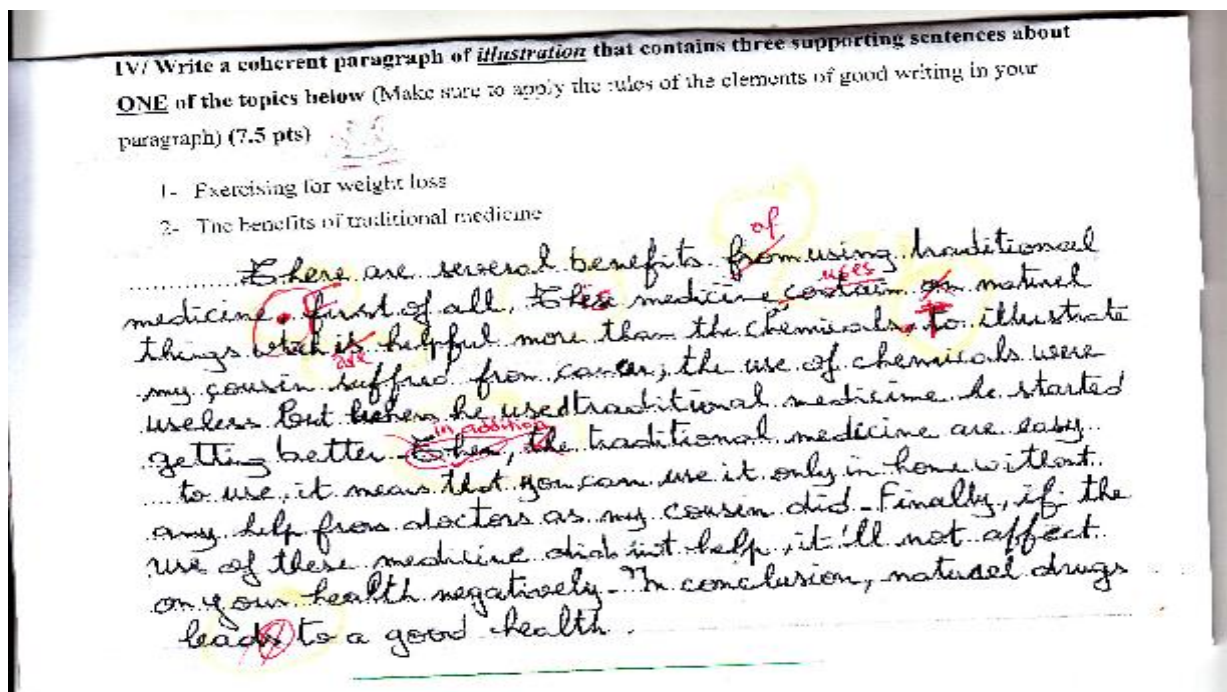 IV/ Write a coherent paragraph of illustration that contains three supporting sentences about
ONE of the topics below (Make sure to apply the rules of the elements of good writing in your
paragraph) (7.5 pts)
1- Exercising for weight loss
2- The benefits of traditional medicine
of
There are several benefits from using traditional
uses
medicine. first of all, medicine contain on naturel
things which is helpful more than the chemicals. To illustrate
are
my cousin suffred from cancer; the use of chemicals were
useless but when he used traditional medicine he started
in addition
getting better. Then, the traditional medicine are easy
to use, it means that you can use it only in home without
any help from doctors as my cousin did. Finally, if the
use of these medicine did not help, it'll not affect
on your health negatively. In conclusion, naturel drugs
leads to a good health.